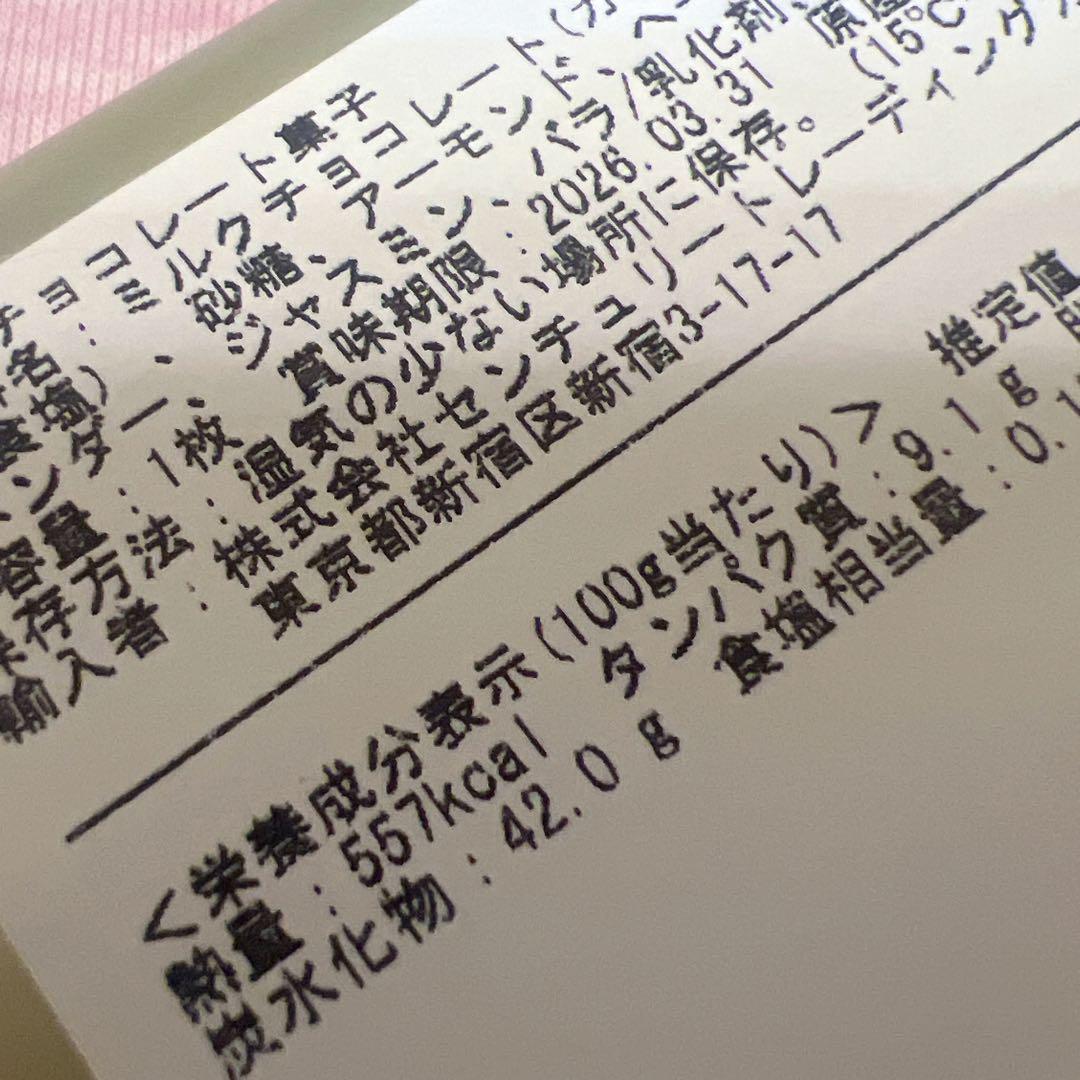 チョコレート菓子
名：ミルクチョコレート(カ
食塩)、砂糖、アーモンド、ヘー
ンダー、ジャスミン、バラ/乳化剤、
容量：1枚　賞味期限：2026.03.31　原産
保存方法：湿気の少ない場所に保存。(15℃
輸入者：株式会社センチュリートレーディング
東京都新宿区新宿3-17-17
＜栄養成分表示(100g当たり)＞　推定値
熱量：557kcal　タンパク質：9.1g
炭水化物：42.0g　食塩相当量：0.1